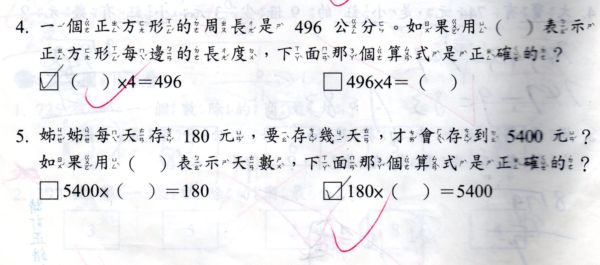 4. 一個正方形的周長是 496 公分。如果用 (　) 表示
正方形每邊的長度，下面那個算式是正確的？
☑ (　)x4=496　□ 496x4= (　)
5. 姊姊每天存 180 元，要存幾天，才會存到 5400 元？
如果用 (　) 表示天數，下面那個算式是正確的？
□ 5400x (　) =180　☑ 180x (　) =5400